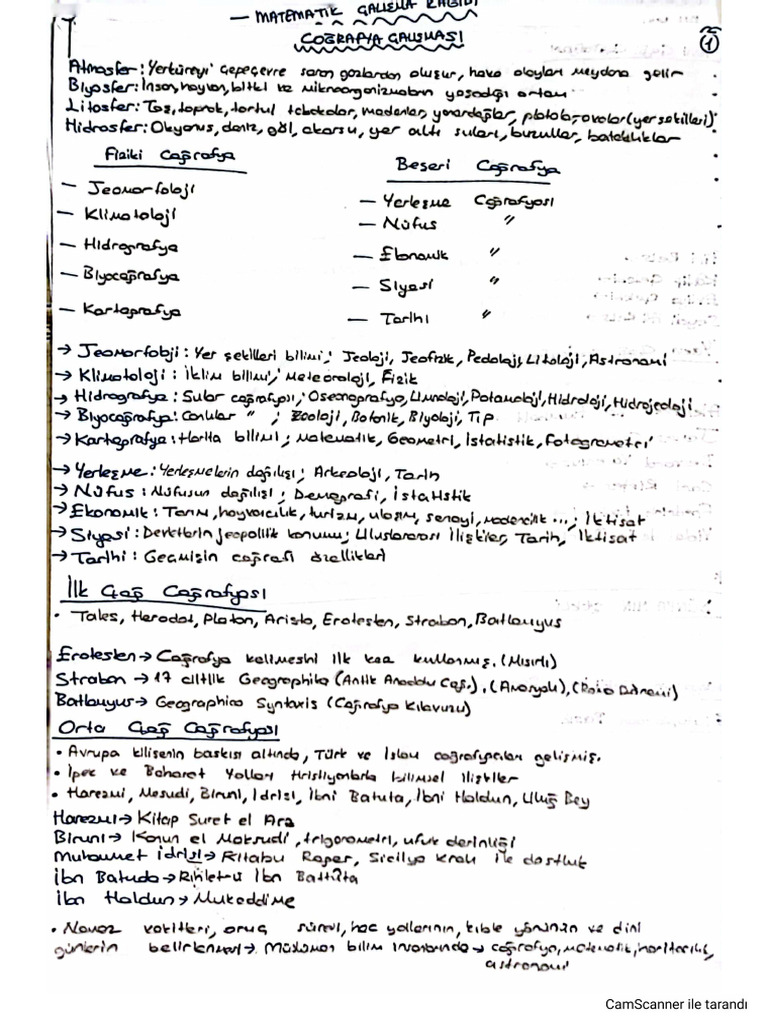 — MATEMATİK ÇALIŞMA KAĞIDI
COĞRAFYA ÇALIŞMASI
1
Atmosfer: Yerküreyi çepeçevre saran gazlardan oluşur, hava olayları meydana gelir
Biyosfer: İnsan, hayvan, bitki ve mikroorganizmaların yaşadığı ortam
Litosfer: Taş, toprak, tortul tabakalar, madenler, yanardağlar, plato, ovalar (yer şekilleri)
Hidrosfer: Okyanus, deniz, göl, akarsu, yer altı suları, buzullar, bataklıklar
Fiziki Coğrafya
Beşeri Coğrafya
— Jeomorfoloji
— Yerleşme Coğrafyası
— Klimatoloji
— Nüfus "
— Hidrografya
— Ekonomik "
— Biyocoğrafya
— Siyasi "
— Kartografya
— Tarihi "
→ Jeomorfoloji: Yer şekilleri bilimi; Jeoloji, Jeofizik, Pedoloji, Litoloji, Astronomi
→ Klimatoloji: İklim bilimi; Meteoroloji, Fizik
→ Hidrografya: Sular coğrafyası; Oseonografya, Limnoloji, Potamoloji, Hidroloji, Hidrojeoloji
→ Biyocoğrafya: Canlılar " ; Zooloji, Botanik, Biyoloji, Tıp
→ Kartografya: Harita bilimi; Matematik, Geometri, İstatistik, Fotogrometri
→ Yerleşme: Yerleşmelerin dağılışı; Arkeoloji, Tarih
→ Nüfus: Nüfusun dağılışı; Demografi, İstatistik
→ Ekonomik: Tarım, hayvancılık, turizm, ulaşım, sanayi, madencilik ...; İktisat
→ Siyasi: Devletlerin jeopolitik konumu; Uluslararası İlişkiler, Tarih, İktisat
→ Tarihi: Geçmişin coğrafi özellikleri
İlk Çağ Coğrafyası
• Tales, Herodot, Platon, Aristo, Erotesten, Strabon, Batlamyus
Erotesten → Coğrafya kelimesini ilk kez kullanmış. (Mısırlı)
Strabon → 17 ciltlik Geographika (Antik Anadolu Coğ.), (Amasyalı), (Roma Dönemi)
Batlamyus → Geographica Syntaxis (Coğrafya Kılavuzu)
Orta Çağ Coğrafyası
• Avrupa kilisenin baskısı altında, Türk ve İslam coğrafyacıları gelişmiş.
• İpek ve Baharat Yolları Hristiyanlarla bilimsel ilişkiler
• Harezmi, Mesudi, Biruni, İdrisi, İbni Batuta, İbni Haldun, Uluğ Bey
Harezmi → Kitap Suret el Arz
Biruni → Kanun el Maksudi, trigonometri, ufuk derinliği
Muhammet İdrisi → Kitabu Roger, Sicilya Kralı ile dostluk
İbn Batuda → Rıhletü İbn Battûta
İbn Haldun → Mukeddime
• Namaz vakitleri, oruç süresi, hac yollarının, kıble yönünün ve dini
günlerin belirlenmesi → Müslüman bilim insanlarında → coğrafya, matematik, haritacılık,
astronomi
CamScanner ile tarandı